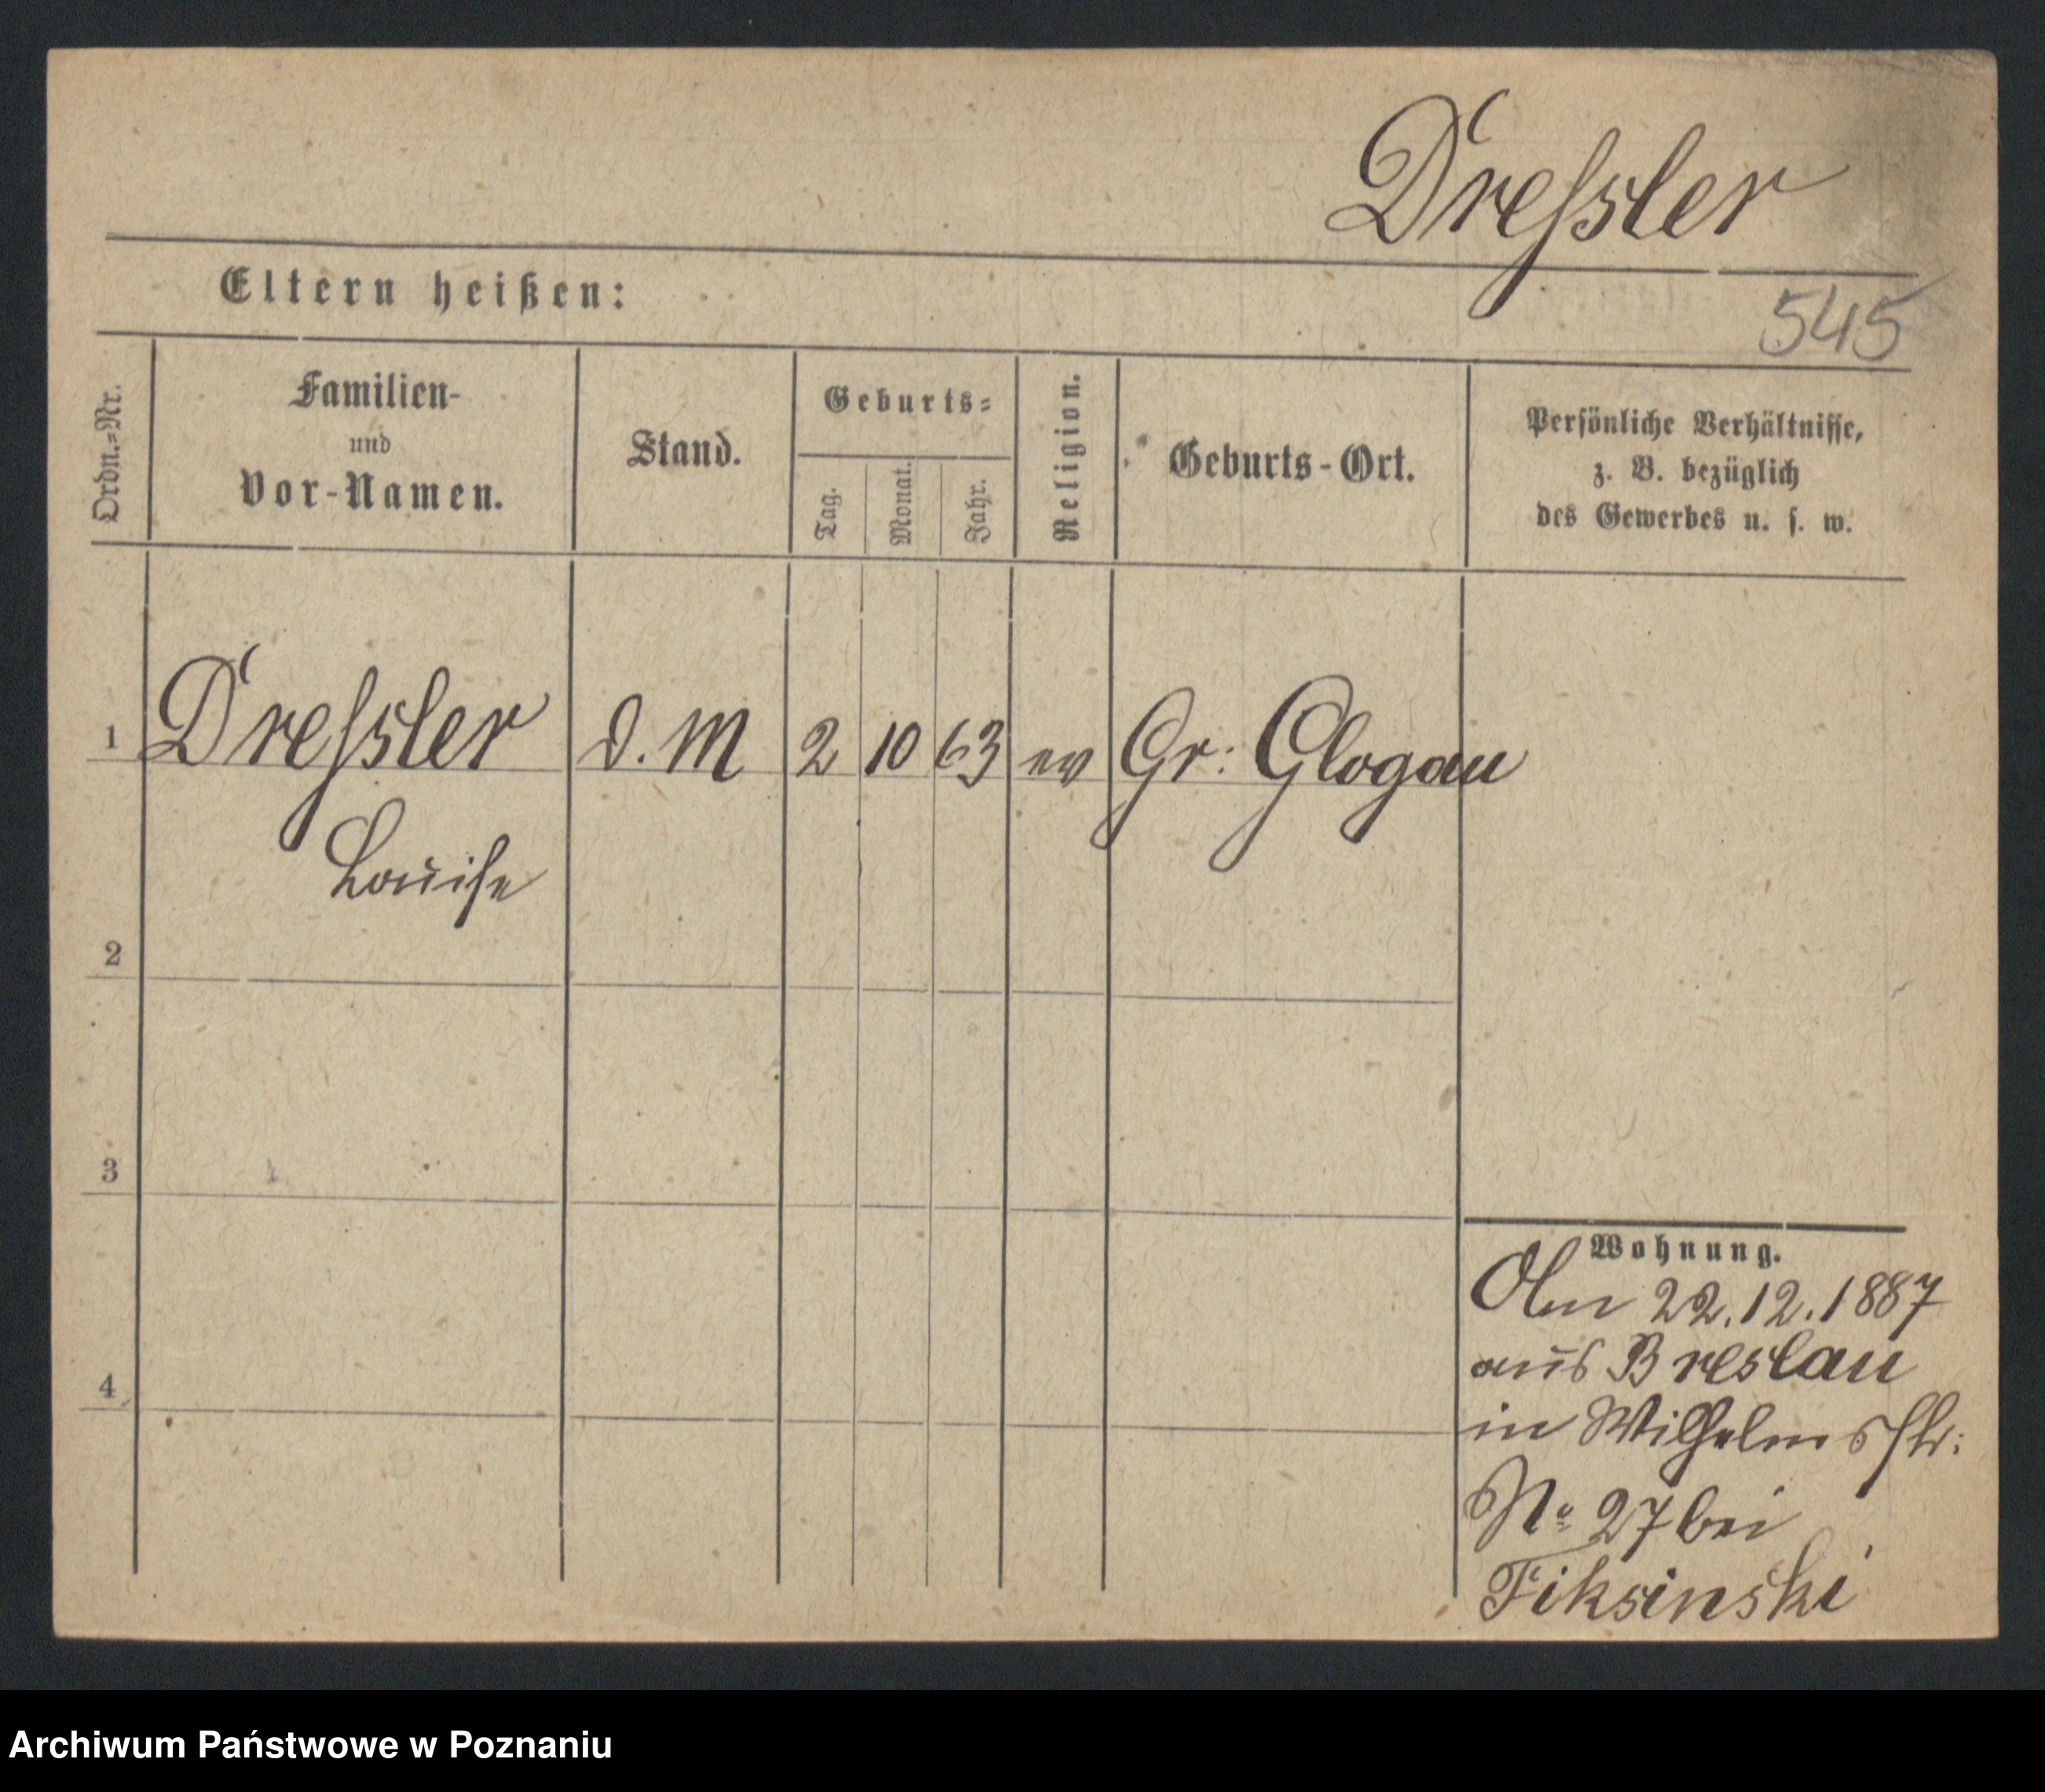 Dreſsler
Eltern heißen:
545
Ordn.=Nr.
Familien-
und
Vor-Namen.
Stand.
Geburts=
Tag.
Monat.
Jahr.
Religion.
Geburts-Ort.
Persönliche Verhältnisse,
z. B. bezüglich
des Gewerbes u. s. w.
1 Dreſsler d. M 2 10 63 ev Gr: Glogau
Louise
2
3
4
Wohnung.
Am 22.12.1887
aus Breslau
in Wilhelmsstr:
No 27 bei
Fiksinski
Archiwum Państwowe w Poznaniu